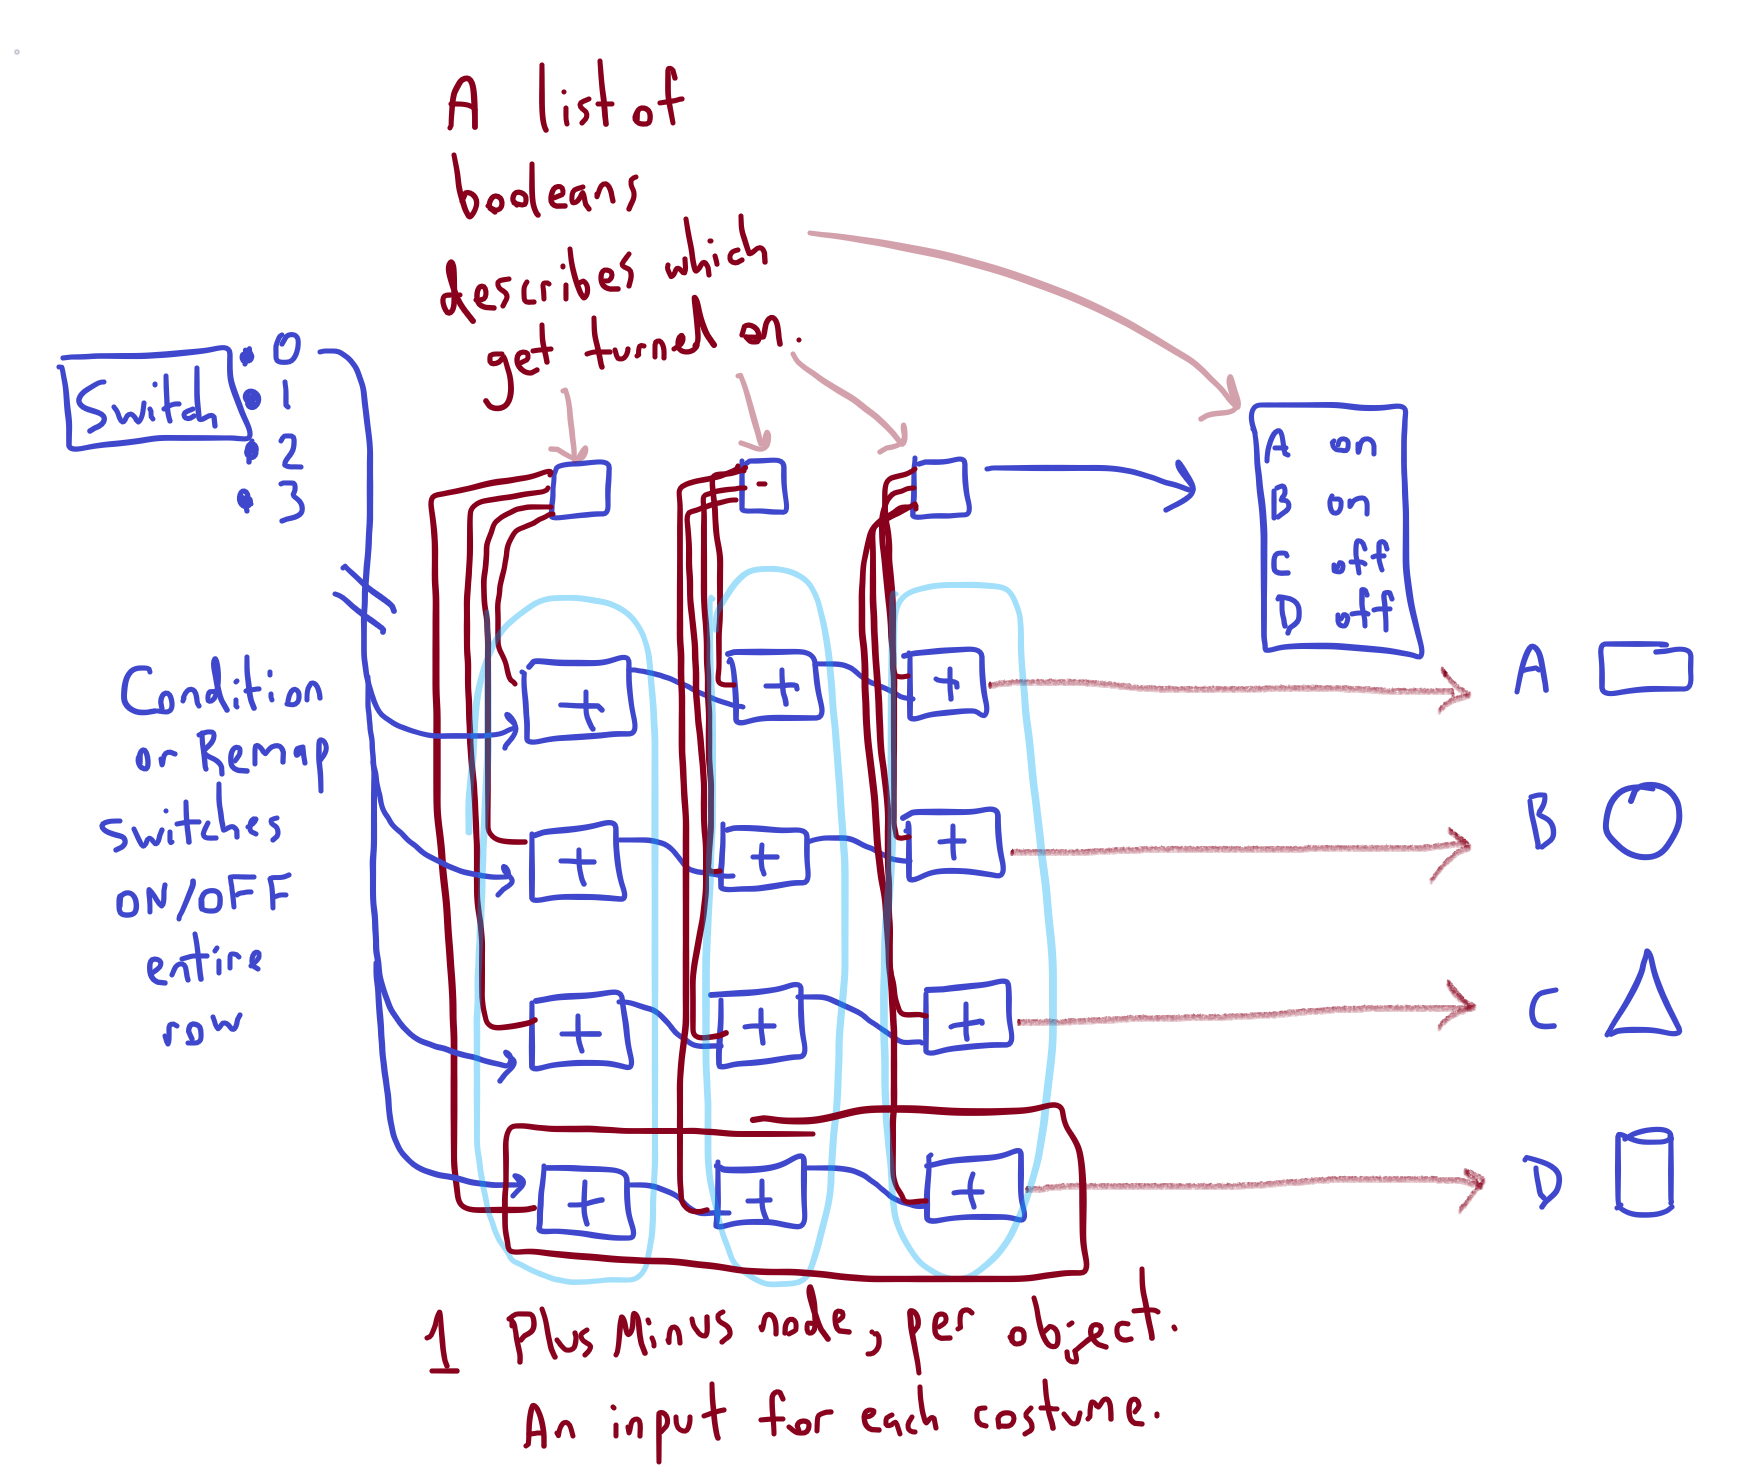 A list of
booleans
describes which
get turned on.
Switch
0
1
2
3
A on
B on
C off
D off
-
Condition
or Remap
switches
ON/OFF
entire
row
+ + +
+ + +
+ + +
+ + +
A
B
C
D
1 Plus Minus node, per object.
An input for each costume.